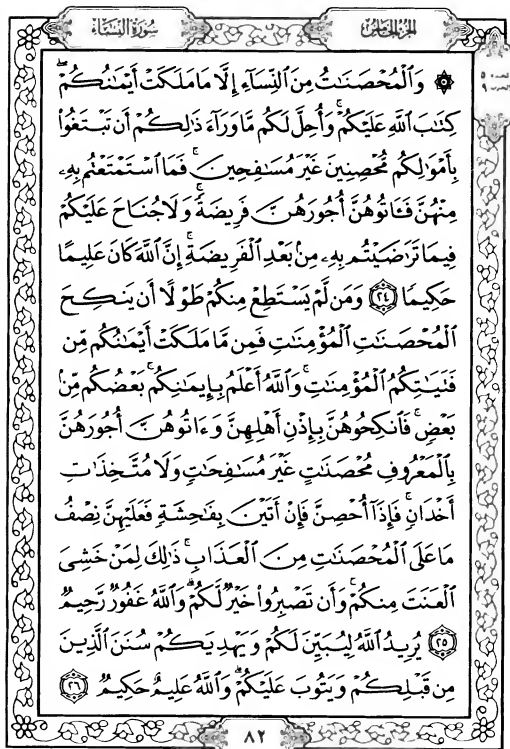 الجزء الخامس
سورة النساء
الحزب ٩
۞ وَالْمُحْصَنَاتُ مِنَ النِّسَاءِ إِلَّا مَا مَلَكَتْ أَيْمَانُكُمْ ۖ
كِتَابَ اللَّهِ عَلَيْكُمْ ۚ وَأُحِلَّ لَكُم مَّا وَرَاءَ ذَٰلِكُمْ أَن تَبْتَغُوا
بِأَمْوَالِكُم مُّحْصِنِينَ غَيْرَ مُسَافِحِينَ ۚ فَمَا اسْتَمْتَعْتُم بِهِ
مِنْهُنَّ فَآتُوهُنَّ أُجُورَهُنَّ فَرِيضَةً ۚ وَلَا جُنَاحَ عَلَيْكُمْ
فِيمَا تَرَاضَيْتُم بِهِ مِن بَعْدِ الْفَرِيضَةِ ۚ إِنَّ اللَّهَ كَانَ عَلِيمًا
حَكِيمًا ٢٤ وَمَن لَّمْ يَسْتَطِعْ مِنكُمْ طَوْلًا أَن يَنكِحَ
الْمُحْصَنَاتِ الْمُؤْمِنَاتِ فَمِن مَّا مَلَكَتْ أَيْمَانُكُم مِّن
فَتَيَاتِكُمُ الْمُؤْمِنَاتِ ۚ وَاللَّهُ أَعْلَمُ بِإِيمَانِكُم ۚ بَعْضُكُم مِّن
بَعْضٍ ۚ فَانكِحُوهُنَّ بِإِذْنِ أَهْلِهِنَّ وَءَاتُوهُنَّ أُجُورَهُنَّ
بِالْمَعْرُوفِ مُحْصَنَاتٍ غَيْرَ مُسَافِحَاتٍ وَلَا مُتَّخِذَاتِ
أَخْدَانٍ ۚ فَإِذَا أُحْصِنَّ فَإِنْ أَتَيْنَ بِفَاحِشَةٍ فَعَلَيْهِنَّ نِصْفُ
مَا عَلَى الْمُحْصَنَاتِ مِنَ الْعَذَابِ ۚ ذَٰلِكَ لِمَنْ خَشِيَ
الْعَنَتَ مِنكُمْ ۚ وَأَن تَصْبِرُوا خَيْرٌ لَّكُمْ ۗ وَاللَّهُ غَفُورٌ رَّحِيمٌ
٢٥ يُرِيدُ اللَّهُ لِيُبَيِّنَ لَكُمْ وَيَهْدِيَكُمْ سُنَنَ الَّذِينَ
مِن قَبْلِكُمْ وَيَتُوبَ عَلَيْكُمْ ۗ وَاللَّهُ عَلِيمٌ حَكِيمٌ ٢٦
٨٢